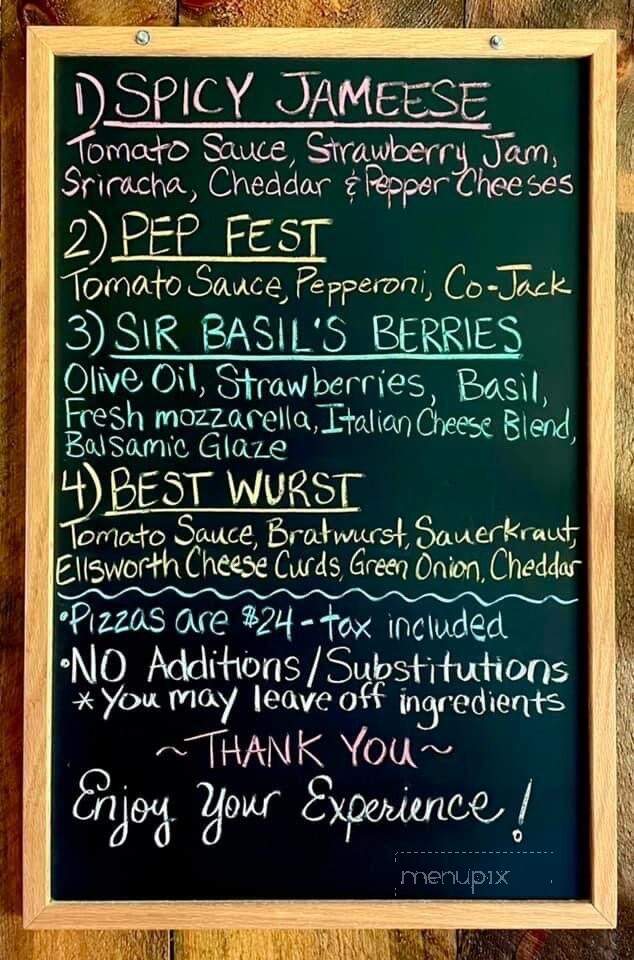 1) SPICY JAMEESE
Tomato Sauce, Strawberry Jam,
Sriracha, Cheddar & Pepper Cheeses
2) PEP FEST
Tomato Sauce, Pepperoni, Co-Jack
3) SIR BASIL'S BERRIES
Olive Oil, Strawberries, Basil,
Fresh mozzarella, Italian Cheese Blend,
Balsamic Glaze
4) BEST WURST
Tomato Sauce, Bratwurst, Sauerkraut,
Ellsworth Cheese Curds, Green Onion, Cheddar
•Pizzas are $24 - tax included
•NO Additions/Substitutions
* You may leave off ingredients
~THANK YOU~
Enjoy Your Experience!
menupix